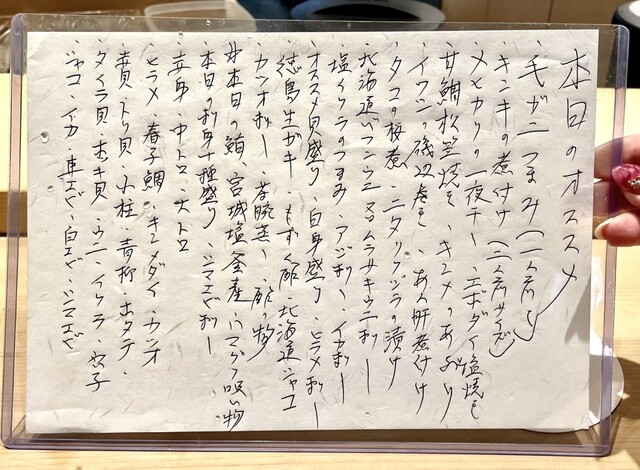 本日のオススメ
・毛ガニつまみ(二人前より)
・キンキの煮付け(二人前サイズ)
・メヒカリの一夜干し・エボダイ塩焼き
・甘鯛松笠焼き・キンメのあぶり
・イワシの磯辺巻き・あん肝煮付け
・タコの桜煮・ニタリクジラの漬け
・北海道バフンウニ ムラサキウニ刺し
・塩イクラのつまみ・アジ刺し・イカ刺し
・オススメ貝盛り・白身盛り・ヒラメ刺し
・徳島生ガキ・もずく酢・北海道シャコ
・カツオ刺し・茶碗蒸し・酢の物
#本日の鮪、宮城塩釜産・ハマグリ吸い物
・本日の刺身十種盛り・シマエビ刺し
・赤身・中トロ・大トロ
・ヒラメ・春子鯛・キンメダイ・カツオ
・赤貝・トリ貝・小柱・青柳・ホタテ・
・タイラ貝・ホッキ貝・ウニ・イクラ・穴子
・シャコ・イカ・車エビ・白エビ・シマエビ